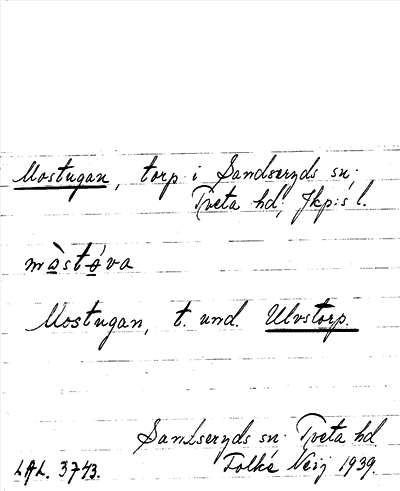 Mostugan, torp i Sandseryds sn.
Tveta hd, Jkp:s l.
màstǿva
Mostugan, t. und. Ulvstorp.
Sandseryds sn. Tveta hd.
LAL. 3743. Folke Neij 1939.